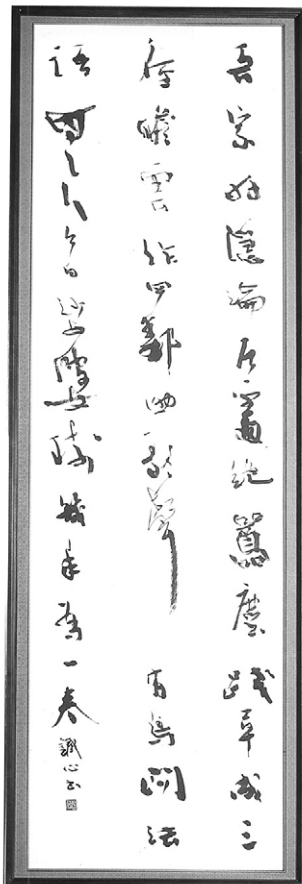 吾家好隱淪居處絕囂塵踐草成三
徑瞻雲作四鄰助歌聲有鳥問法
語無人今日娑婆樹幾年為一春
鐵心书